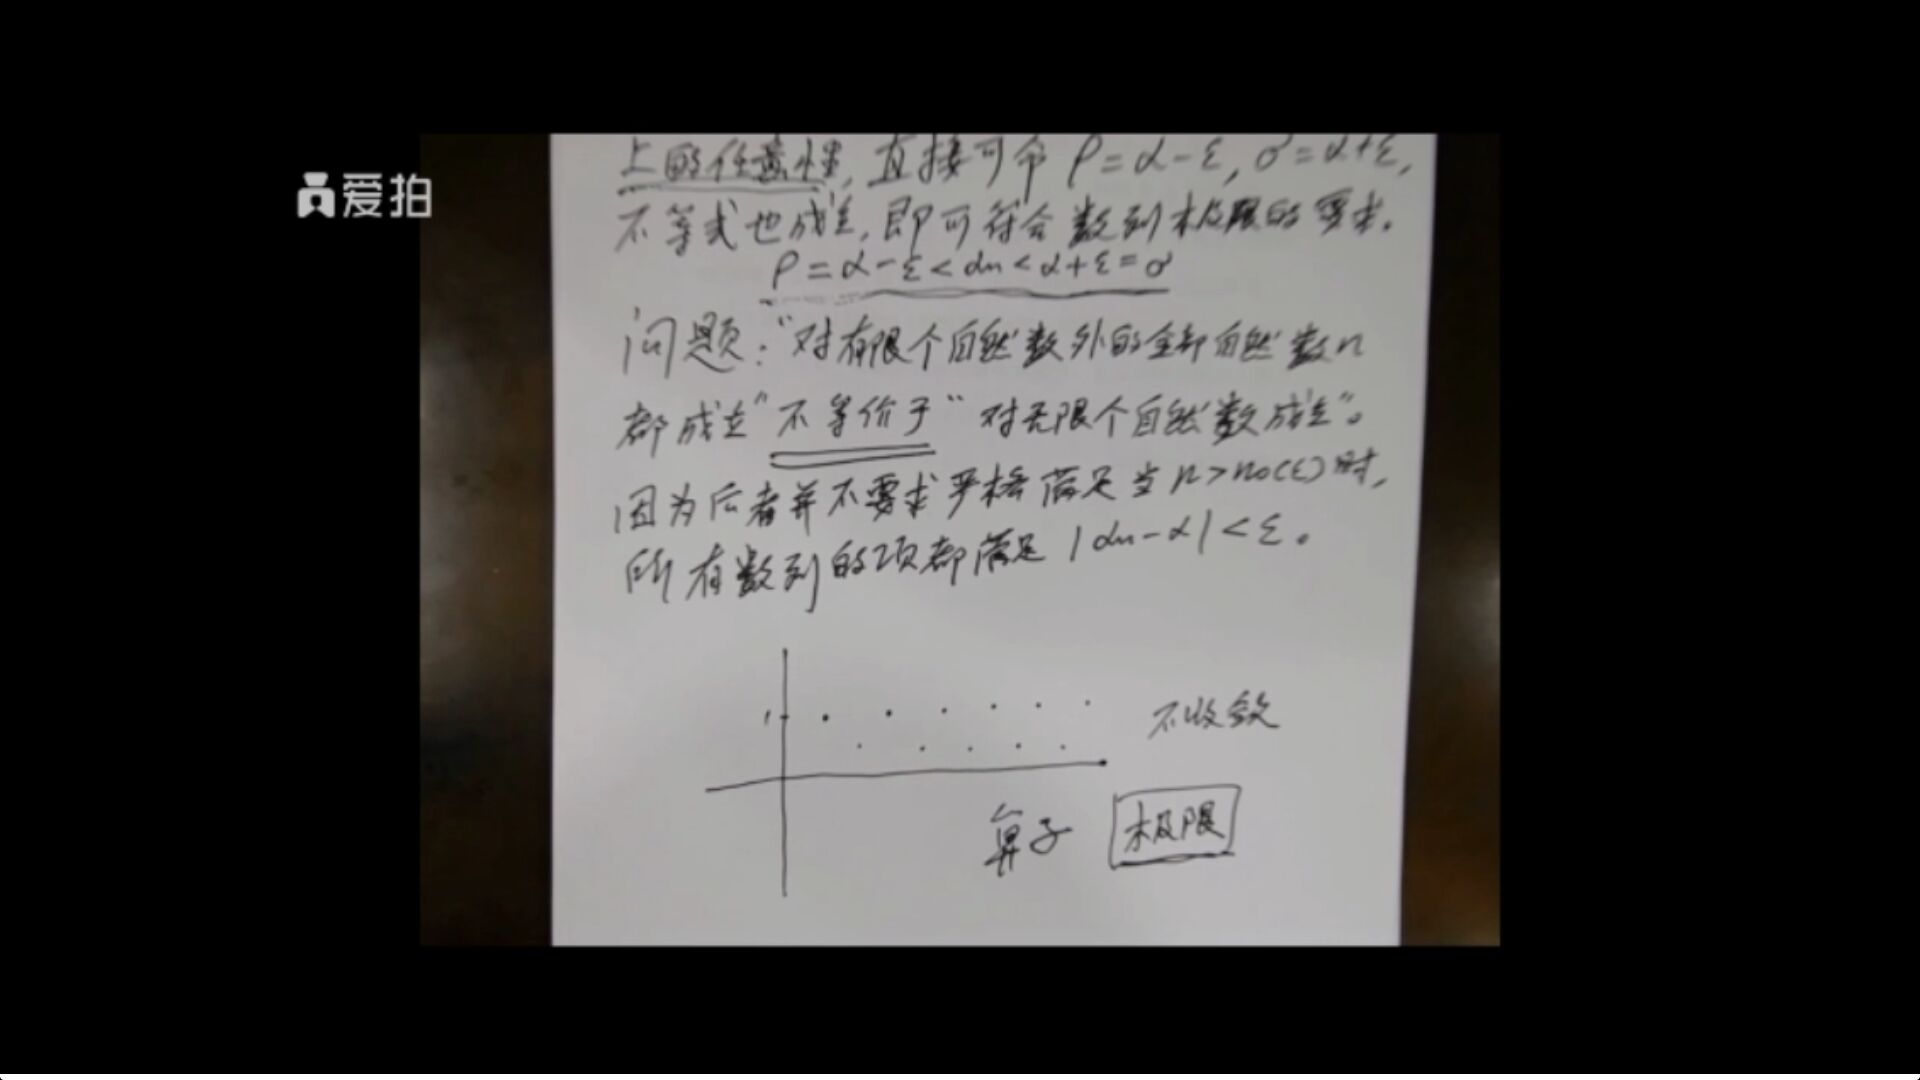 爱拍
上的任意性，直接可令 ρ=α-ε，σ=α+ε，
不等式也成立，即可符合数列极限的要求。
ρ=α-ε<αn<α+ε=σ
问题："对有限个自然数外的全部自然数n
都成立"不等价于"对无限个自然数成立"。
因为后者并不要求严格满足当n>n₀(ε)时，
所有数列的项都满足|αn-α|<ε。
1
不收敛
算子 极限